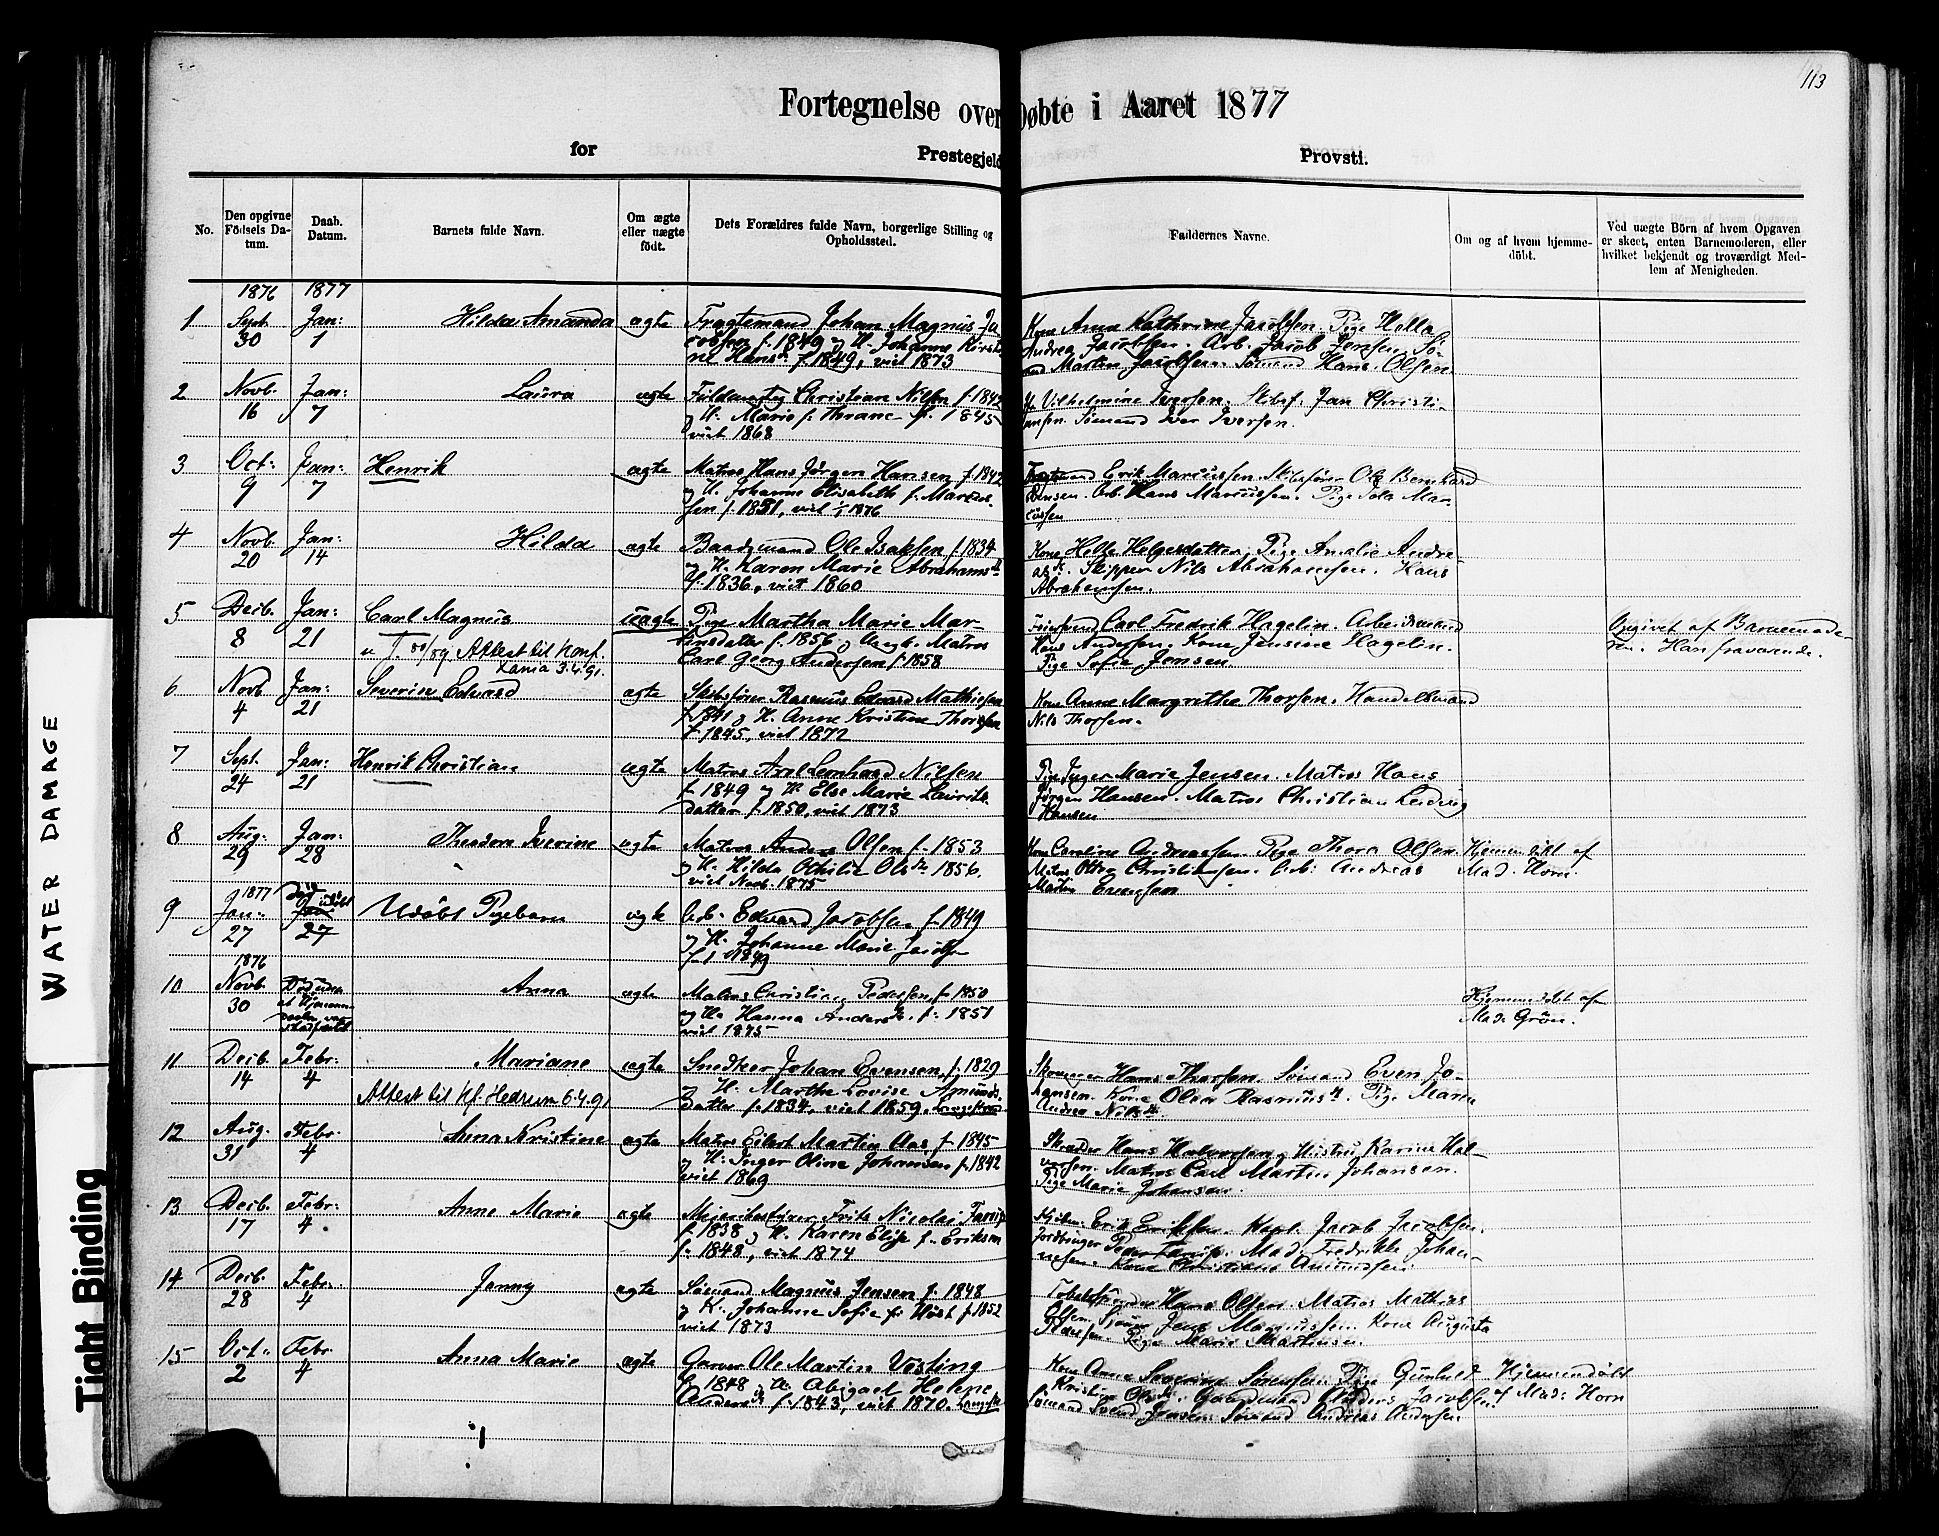 113
Fortegnelse over Døbte i Aaret 1877
for Prestegjeld Provsti.
No.
Den opgivne Fødsels Datum.
Daab. Datum.
Barnets fulde Navn.
Om ægte eller uægte født.
Dets Forældres fulde Navn, borgerlige Stilling og Opholdssted.
Faddernes Navne.
Om og af hvem hjemmedöbt.
Ved uægte Börn af hvem Opgaven er skeet, enten Barnemoderen, eller hvilket bekjendt og troværdigt Medlem af Menigheden.
1876 1877
1 Sept. 30 Jan: 1 Hilda Amanda ægte
Fragtemand Johan Magnus Ja
cobsen f. 1849 og H. Johanne Kirsti
ne Hansd: f. 1849, viet 1873
Kone Anna Kathrine Jacobsen. Pige Hella
Andrea Jacobsen. Arb. Jacob Jensen. Sö-
mand Martin Jacobsen. Sömand Hans Olsen.
2 Novb. 16 Jan: 7 Laura ægte
Christian Nilsen f. 1842
og H. Marie f. Thrane f. 1845
viet 1868
Vilhelmine Iversen. Skibsf. Jan Christi-
ansen. Sömand Iver Iversen.
3 Oct: 9 Jan: 7 Henrik ægte
Matros Hans Jørgen Hansen f. 1842
og H. Johanne Elisabeth f. Marcus-
sen f. 1851, viet 1/1 1876
Fragtemand Erik Marcussen. Skibsfører Ole Bernhard
Bensen. Arb. Hans Marcussen. Pige Mar-
cussen
4 Novb. 20 Jan: 14 Hilda ægte
Baadsmand Ole Isaksen f. 1834
og H. Karen Marie Abrahamsd.
f. 1836, viet 1860
Kone Helle Helgesdatter. Pige Amalie Andre
asd. Skipper Nils Abrahamsen. Hans
Abrahamsen.
5 Decb. 8 Jan: 21 Carl Magnus uægte
u T. 80/89 Attest til Konf.
Xania 3.4.91.
Pige Martha Marie Mar-
tinsdatter f. 1856 og Ungk. Matros
Carl Georg Andersen f. 1858
Carl Fredrik Hagelin. Arbeidsmand
Hans Andersen. Kone Jensine Hagelin.
Pige Sofie Jensen.
Opgivet af Barnemode-
ren. Han fraværende.
6 Novb 4 Jan: 21 Severin Edvard ægte
Skibsfører Rasmus Edvard Mathiesen
f. 1841 og H. Anne Kristine Thorsen
f. 1845, viet 1872
Kone Anne Margrethe Thorsen. Handelsmand
Nils Thorsen.
7 Sept. 24 Jan: 21 Henrik Christian ægte
Matros Axel Lenhard Nilsen
f. 1849 og H. Else Marie Laurits-
datter f. 1850, viet 1873
Pige Inger Marie Jensen. Matros Hans
Jørgen Hansen. Matros Christian Ludvig
Hansen
8 Aug: 29 Jan: 28 Theodora Iverine ægte
Matros Anders Olsen f. 1853
og H. Hilda Othilie Olsdr 1856.
viet Novb. 1875
Kone Caroline Andreassen. Pige Thora Olsen
Matros Otto Christiansen. Arb: Andreas
Martin Evensen
Hjemmedöbt af
Mad. Horn.
9 1877 Jan: 27 Död udöbt Jan 27 Udöbt Pigebarn ægte
Arb. Edvard Jacobsen f. 1849
og H. Johanne Marie Jacobsen
f. 1849
1876
10 Novb 30 Anna ægte
Matros Christian Pedersen f. 1850
og H. Hanna Andersd. f. 1851
viet 1875
Hjemmedöbt af
Mad. Grön.
11 Decb. 14 Febr: 4 Mariane ægte
Attest til Kf. Hedrum 6.4.91
Snedker Johan Evensen, f. 1829
og H. Marthe Lovise Amunds-
datter f. 1834, viet 1859.
Skomager Hans Thorsen. Sömand Even Jo-
hansen. Kone Olea Rasmusd. Pige Maren
Andrea Nilsd.
12 Aug. 31 Febr. 4 Anna Kristine ægte
Matros Eilert Martin Aas f. 1845
og H: Inger Oline Johansen f. 1842
viet 1869
Skrædder Hans Halvorsen og Hustru Karine Hal-
vorsen. Matros Carl Martin Johansen.
Pige Marie Johansen.
13 Decb. 17 Febr: 4. Anne Marie ægte
Meieribestyrer Frits Nicolai
f. 1838 og H. Karen Elise f. Eriksen
f. 1848, viet 1874
Erik Eriksen. Kapt. Jacob Jacobsen.
Mad. Fredrikke Johan-
nesen. Kone Christiane Amundsen.
14 Decb. 28 Febr: 4 Jenny ægte
Sömand Magnus Jensen f. 1848
og H. Johanne Sofie f. Höst f. 1852
viet 1873
Hans Olsen. Matros Mathias
Olsen. Jens Magnussen. Kone Augusta
Pedersen. Pige Marie Martinsen.
15 Oct: 2 Febr 4 Anna Marie ægte
Garver Ole Martin Vosting
f. 1848 og H. Abigael Helene
Andersdr f. 1843, viet 1870.
Kone Anne Severine Sörensen. Pige Gunhild
Kristine Olsd. Gaardmand Anders Jacobsen.
Sömand Svend Jensen. Sömand Andreas Andersen
Hjemmedöbt
af Mad: Horn
WATER DAMAGE
Tight Binding